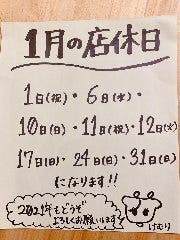 1月の店休日
1日(祝)・6日(水)・
10日(日)・11日(祝)・12日(火)
17日(日)・24日(日)・31日(日)
になります!!
2021年もどうぞ
よろしくお願いします
けむり